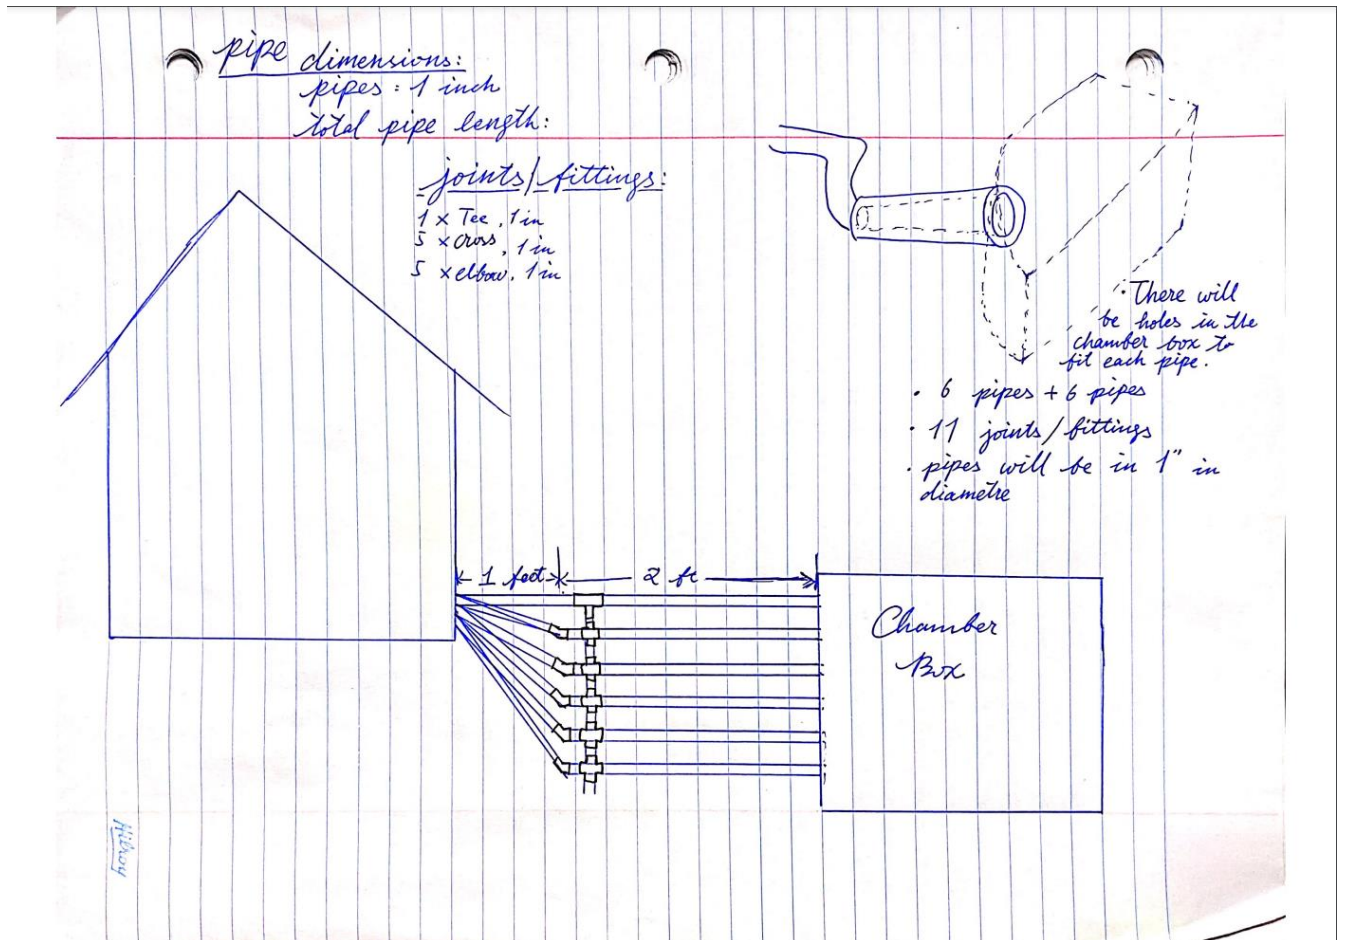 pipe dimensions:
pipes : 1 inch
total pipe length:
joints/fittings:
1 x Tee, 1 in
5 x cross, 1 in
5 x elbow, 1 in
• There will
be holes in the
chamber box to
fit each pipe.
• 6 pipes + 6 pipes
• 11 joints/fittings
• pipes will be in 1" in
diametre
1 feet
2 ft
Chamber
Box
Hilroy